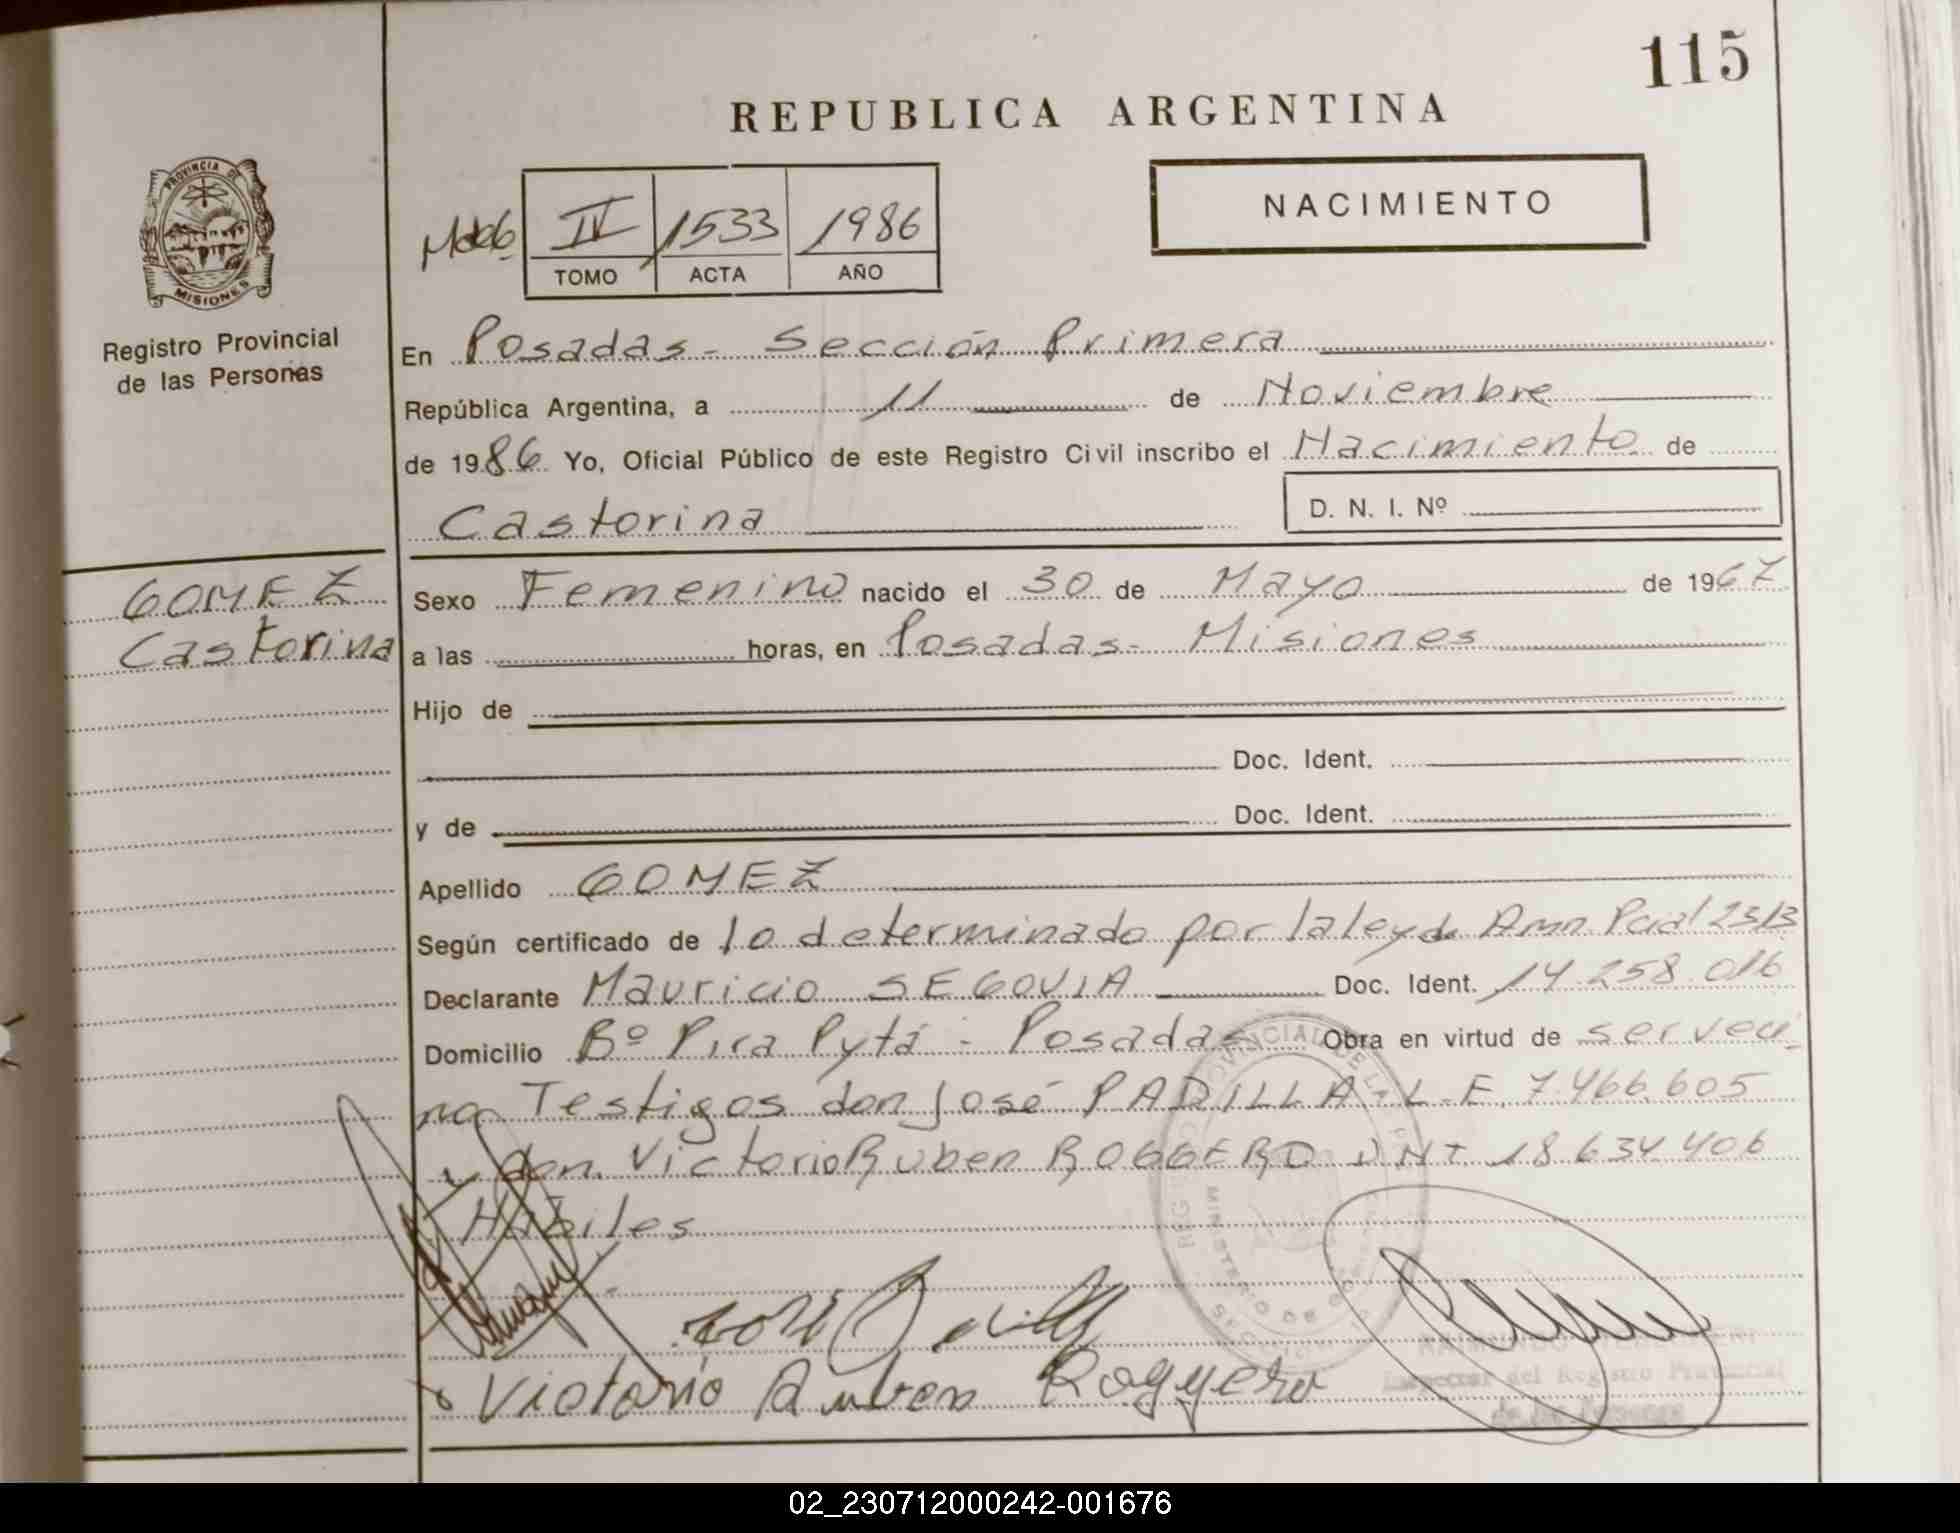 115
REPUBLICA ARGENTINA
PROVINCIA DE
MISIONES
Registro Provincial
de las Personas
IV 1533 1986
TOMO ACTA AÑO
NACIMIENTO
En Posadas - Sección Primera
República Argentina, a 11 de Noviembre
de 1986 Yo, Oficial Público de este Registro Civil inscribo el Nacimiento de
Castorina D. N. I. Nº
GOMEZ
Castorina
Sexo Femenino nacido el 30 de Mayo de 1967
a las horas, en Posadas - Misiones
Hijo de
Doc. Ident.
y de Doc. Ident.
Apellido GOMEZ
Según certificado de lo determinado por la ley de Amn. Pcial 2313
Declarante Mauricio SEGOVIA Doc. Ident. 14.258.016
Domicilio Bº Pira Pytá - Posadas Obra en virtud de ser veci
na Testigos don José PADILLA - L.E. 7.466.605
y don Victorio Ruben ROGGERO DNI 18.634.406
Hábiles
José Padilla
Victorio Ruben Roggero
Inspector del Registro Provincial
de las Personas
02_230712000242-001676